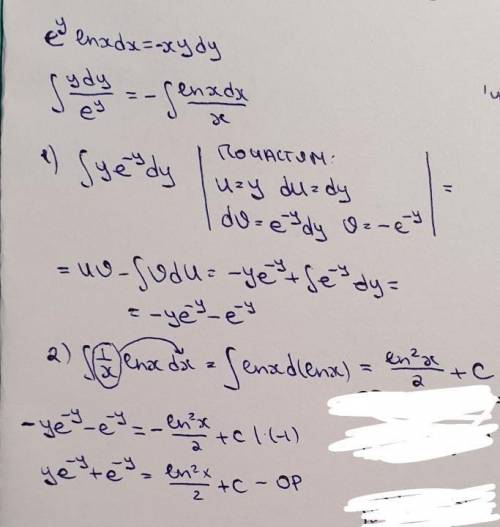 e^y lnxdx=-xydy
∫ ydy/e^y = -∫ lnxdx/x
1) ∫ye^-y dy | по частям: u=y du=dy dv=e^-y dy v=-e^-y | =
= uv-∫vdu= -ye^-y+∫e^-y dy=
= -ye^-y-e^-y
2) ∫(1/x) lnx dx = ∫lnxd(lnx) = ln²x/2 + C
-ye^-y-e^-y=-ln²x/2 +C |·(-1)
ye^-y+e^-y= ln²x/2 +C - ОР